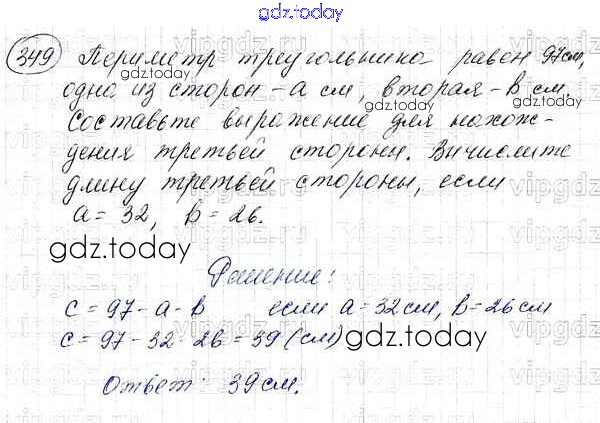 gdz.today
349 Периметр треугольника равен 97см,
одна из сторон - a см, вторая - b см.
Составьте выражение для нахож-
дения третьей стороны. Вычислите
длину третьей стороны, если
a = 32, b = 26.
gdz.today
Решение:
c = 97 - a - b если a = 32 см, b = 26 см
c = 97 - 32 - 26 = 39 (см)
gdz.today
Ответ: 39 см.